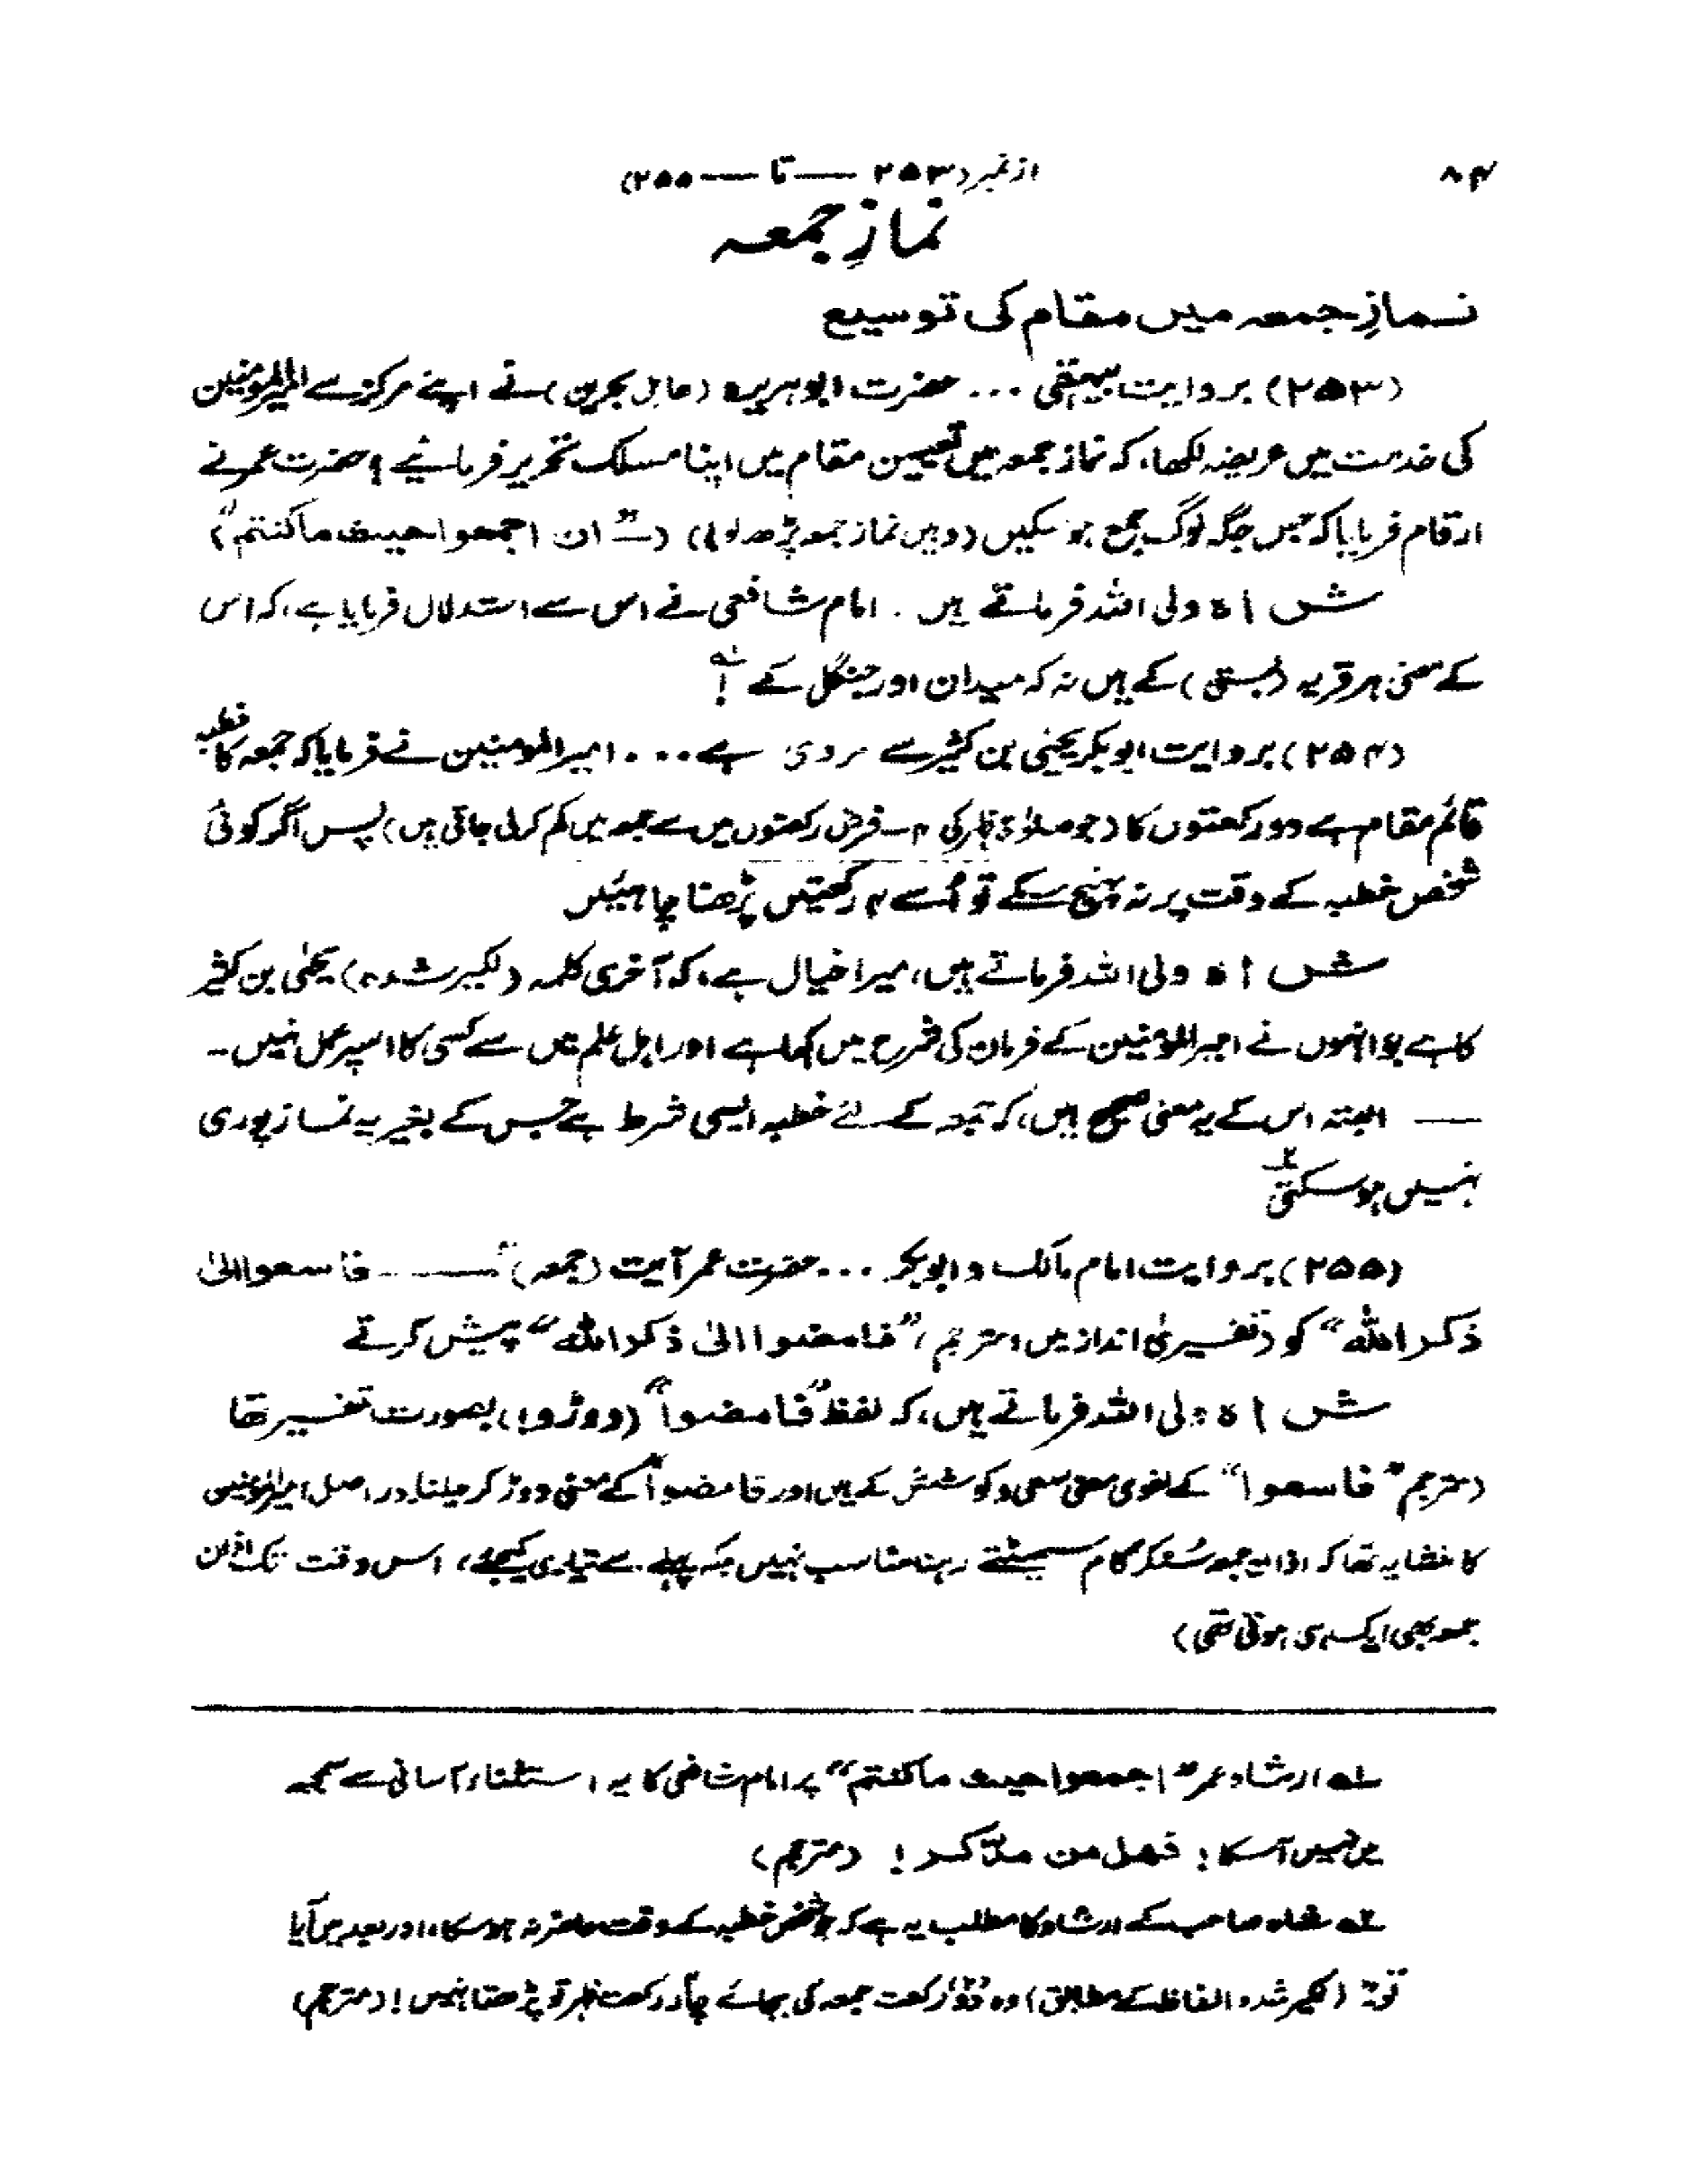 ۸۴
از نمبر (۲۵۳ — تا — ۲۵۵)
نمازِ جمعہ
نمازِ جمعہ میں مقام کی توسیع
(۲۵۳) بروایت بیہقی ... حضرت ابوہریرہ (عامل بحرین) نے اپنے مرکز سے امیرالمؤمنین
کی خدمت میں عریضہ لکھا، کہ نماز جمعہ میں تعیین مقام میں اپنا مسلک تحریر فرمائیے؟ حضرت عمر نے
ارقام فرمایا کہ جس جگہ لوگ جمع ہو سکیں (وہیں نماز جمعہ پڑھ لو!) (— "ان اجمعوا حیث ماکنتم")
شاہ ولی اللہ فرماتے ہیں۔ امام شافعی نے اس سے استدلال فرمایا ہے، کہ اس
کے معنی ہر قریہ (بستی) کے ہیں نہ کہ میدان اور جنگل کے!
(۲۵۴) بروایت ابوبکر یحییٰ بن کثیر سے مروی ہے... امیرالمومنین نے فرمایا کہ جمعہ کا خطبہ
قائم مقام ہے دو رکعتوں کا (جو صلوٰۃ ظہر کی ۴ فرض رکعتوں میں سے جمعہ میں کم کر لی جاتی ہیں) پس اگر کوئی
شخص خطبہ کے وقت پر نہ پہنچ سکے تو اُسے ۴ رکعتیں پڑھنا چاہئیں
شاہ ولی اللہ فرماتے ہیں، میرا خیال ہے، کہ آخری کلمہ (لکیر شدہ) یحییٰ بن کثیر
کا ہے جو انہوں نے امیرالمؤمنین کے فرمان کی شرح میں کہا ہے اور اہل علم میں سے کسی کا اسپر عمل نہیں۔
— البتہ اس کے یہ معنی صحیح ہیں، کہ جمعہ کے لئے خطبہ ایسی شرط ہے جس کے بغیر یہ نماز پوری
نہیں ہو سکتی
(۲۵۵) بروایت امام مالک و ابوبکر ... حضرت عمر آیت (جمعہ) "— فاسعوا الیٰ
ذکر اللہ" کو (تفسیری انداز میں، مترجم) "فامضوا الیٰ ذکر اللہ" پیش کرتے
شاہ ولی اللہ فرماتے ہیں، کہ لفظ "فامضوا" (دوڑو!) بصورت تفسیر تھا
(مترجم "فاسعوا" کے لغوی معنی سعی و کوشش کے ہیں اور فامضوا کے معنی دوڑ کر چلنا، دراصل امیرالمؤمنین
کا منشا یہ تھا کہ اذان جمعہ سُنکر کام سمیٹتے رہنا مناسب نہیں بلکہ پہلے سے تیاری کیجئے، اس وقت تک اذان
جمعہ بھی ایک ہی ہوتی تھی)
لہ ارشاد عمر "اجمعوا حیث ماکنتم" پر امام شافعی کا یہ استثناء آسانی سے سمجھ
میں نہیں آسکا! فهل من مدّکر! (مترجم)
لہ شاہ صاحب کے ارشاد کا مطلب یہ ہے کہ جو شخص خطبہ کے وقت حاضر نہ ہو سکا، اور بعد میں آیا
تو (لکیر شدہ الفاظ کے مطابق) وہ دو رکعت جمعہ کی بجائے چار رکعت ظہر تو پڑھتا نہیں! (مترجم)